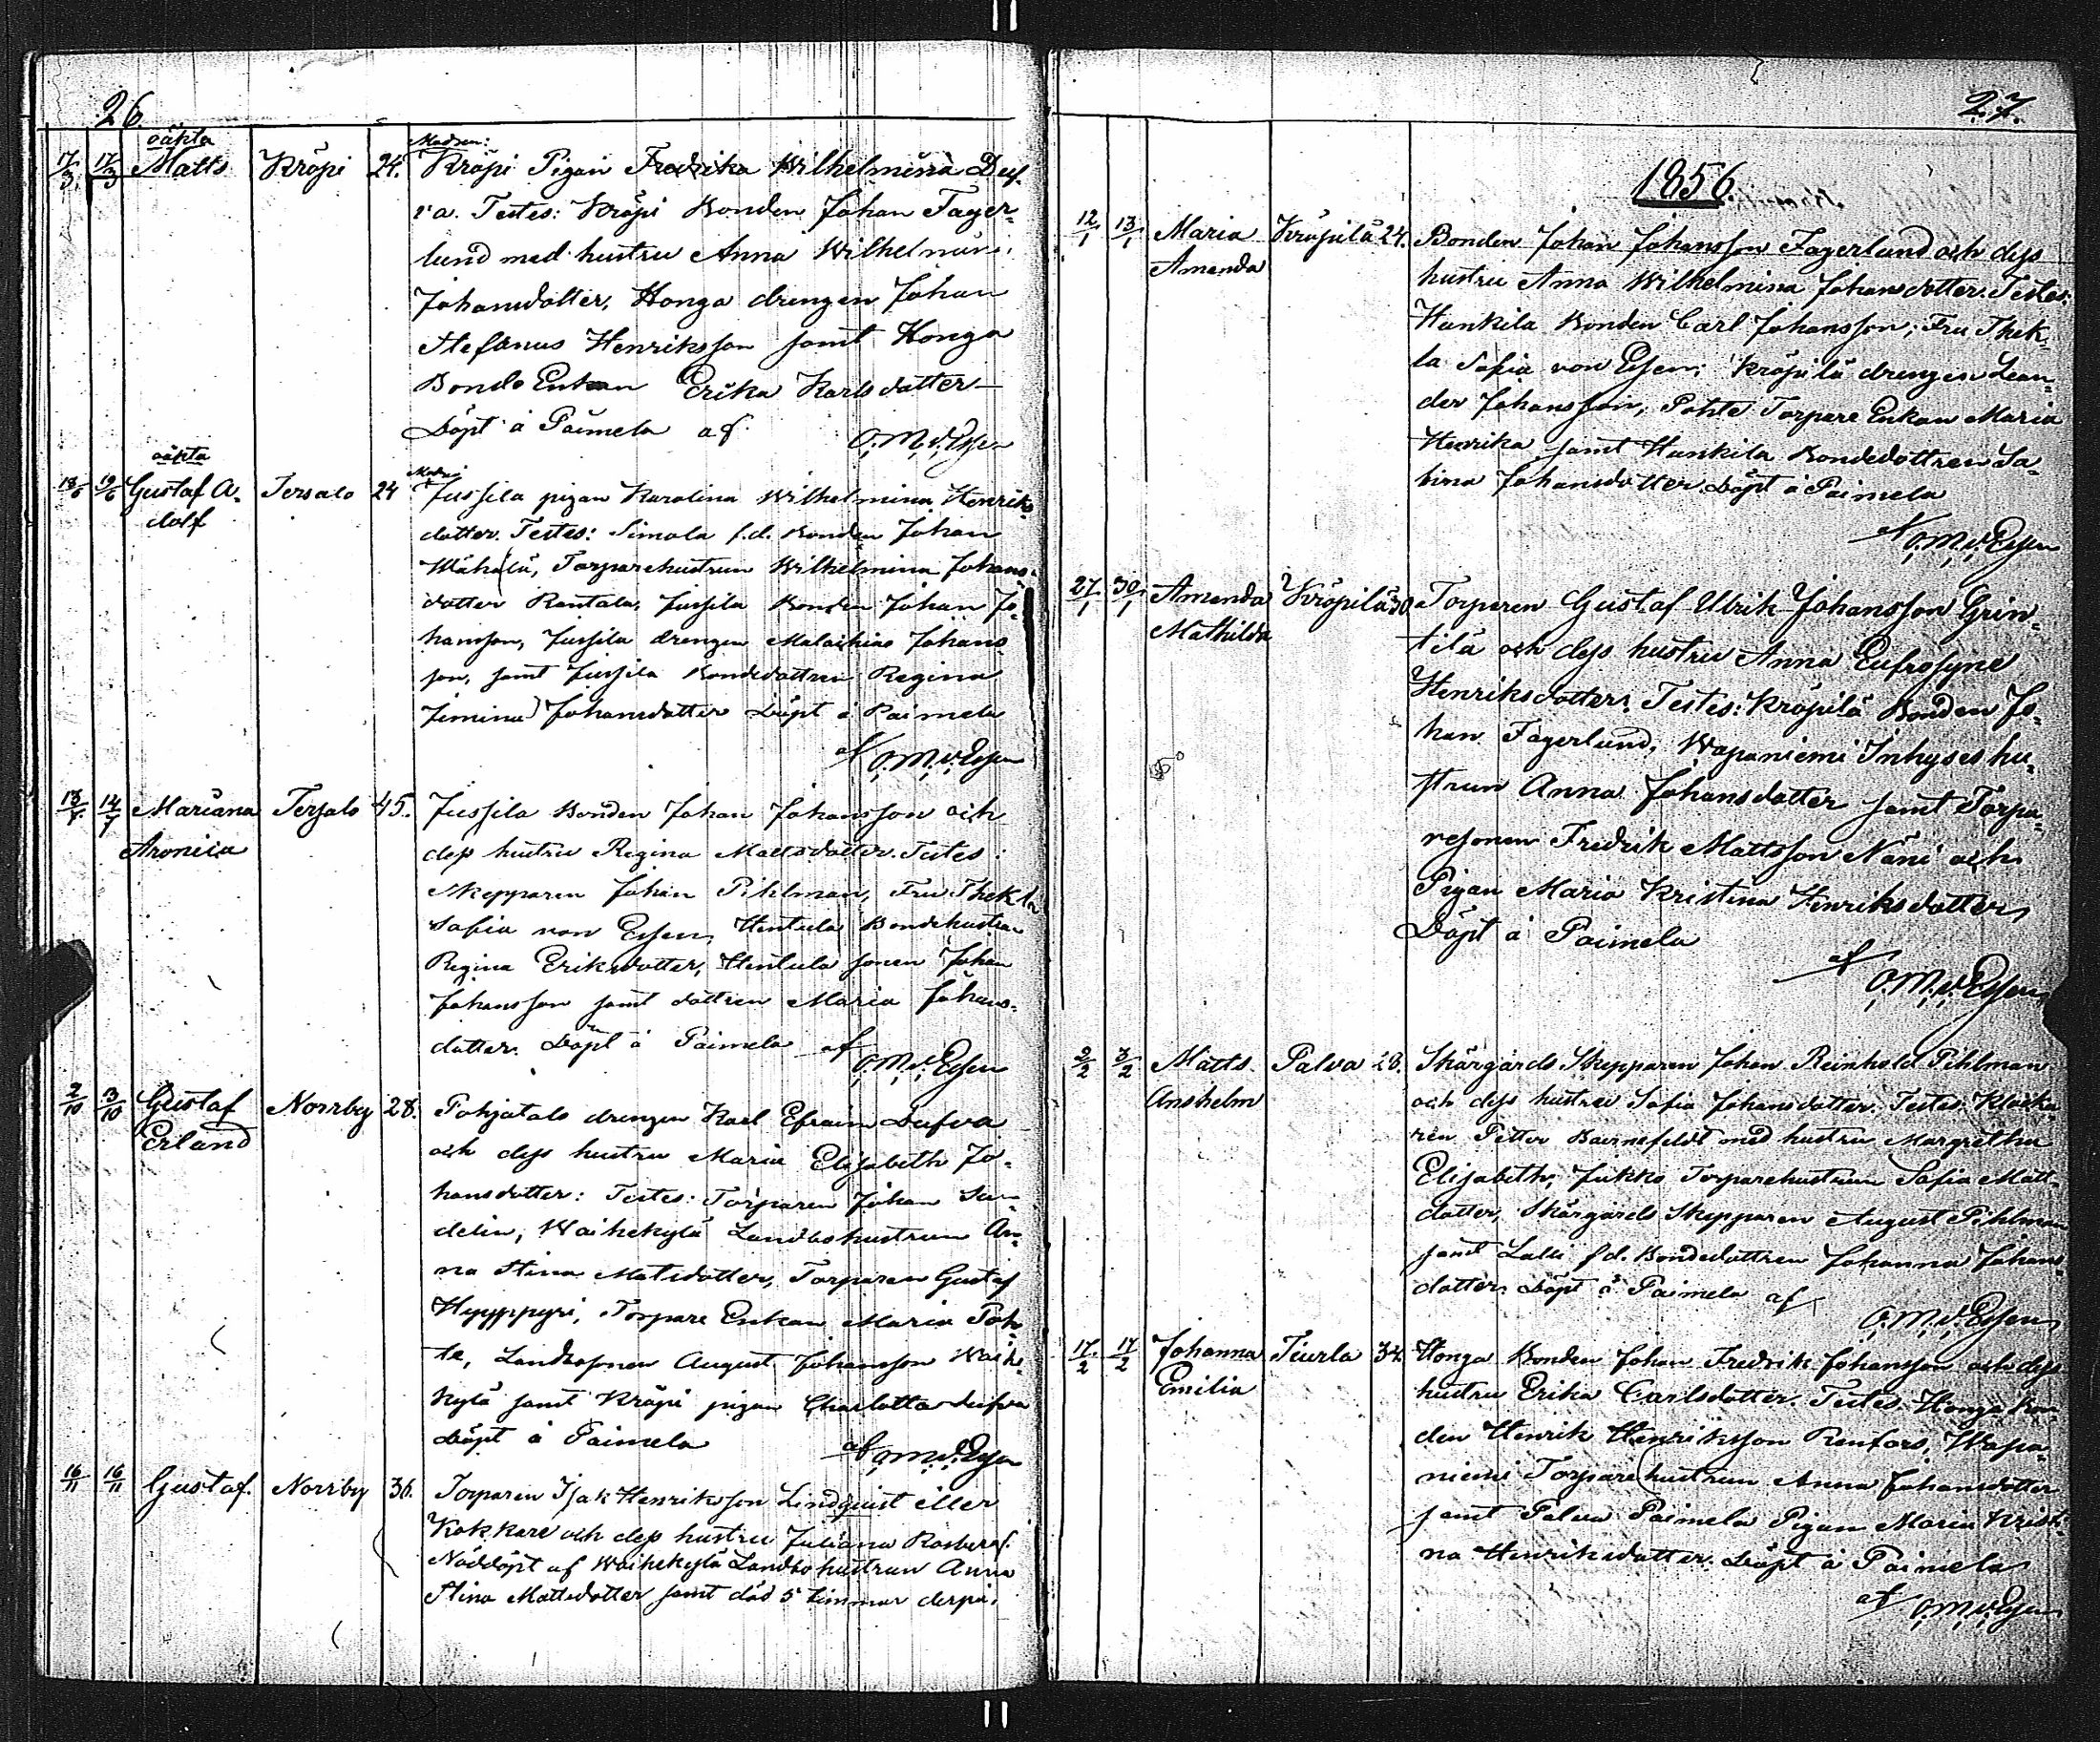 26
oäkta
17/3 17/3 Matts Kröpi 24. Modren: Kröpi Pigan Fredrika Wilhelmina Duf-
va. Testes: Kröpi Bonden Johan Fager-
lund med hustru Anna Wilhelmina
Johansdotter, Honga drengen Johan
Stefanus Henriksson samt Honga
Bonde Enkan Erika Karlsdotter
Döpt å Paimela af O.M.v.Essen
oäkta
18/6 19/6 Gustaf A- Tersalo 24 Jussila pigan Karolina Wilhelmina Henriks-
dolf dotter. Testes: Simola f.d. Bonden Johan
Torparehustrun Wilhelmina Johans-
dotter Rantala, Jussila Bonden Johan Jo-
hansson, Jussila drengen Malachias Johans-
son, samt Jussila Bondedottren Regina
Jimina Johansdotter Döpt å Paimela
af O.M.v.Essen
Mariana Tersalo 45. Jussila Bonden Johan Johansson och
Aronica dess hustru Regina Mattsdotter. Testes:
Skepparen Johan Pihlman, Fru Thekla
Sofia von Essen, Hentula Bondehustrun
Regina Eriksdotter, Hentula sonen Johan
Johansson samt dottren Maria Johans-
dotter. Döpt å Paimela af O.M.v.Essen
2/10 3/10 Gustaf Norrby 28. Pohjatalo drengen Karl Efraim Dufva
Erland och dess hustru Maria Elisabeth Jo-
hansdotter: Testes: Torparen Johan Sun-
delin, Waihekylä Landbohustrun An-
na Stina Matsdotter, Torparen Gustaf
Hyyppyri, Torpare Enkan Maria Poh-
te, Landbosonen August Johansson Waihe-
kylä samt Kröpi pigan Charlotta Dufva
Döpt å Paimela af O.M.v.Essen
16/11 16/11 Gustaf. Norrby 36. Torparen Isak Henriksson Lindquist eller
Kokkare och dess hustru Juliana Rosberg.
Nöddöpt af Waihekylä Landbohustrun Anna
Stina Mattsdotter samt död 5 timmar derpå.
27.
1856.
12/1 13/1 Maria Kröpilä 24. Bonden Johan Johansson Fagerlund och dess
Amanda hustru Anna Wilhelmina Johansdotter. Testes:
Hankila Bonden Carl Johansson, Fru Thek-
la Sofia von Essen, Kröpilä drengen Lean-
der Johansson, Pohte Torpare Enkan Maria
Henrika samt Hankila Bondedottren Sa-
bina Johansdotter. Döpt å Paimela
af O.M.v.Essen
27/1 30/1 Amanda Kröpilä 30. Torparen Gustaf Ulrik Johansson Grin-
Mathilda tilä och dess hustru Anna Eufrosyne
Henriksdotter. Testes: Kröpilä Bonden Jo-
han Fagerlund, Wapaniemi Inhyses hu-
strun Anna Johansdotter samt Torpa-
resonen Fredrik Mattsson Näni och
Pigan Maria Kristina Henriksdotter
Döpt å Paimela
af O.M.v.Essen
2/2 3/2 Matts Palva 28. Skärgårds Skepparen Johan Reinhold Pihlman
Anshelm och dess hustru Sofia Johansdotter. Testes: Klocka-
ren Petter med hustru Margretha
Elisabeth, Jukko Torparehustrun Sofia Matts-
dotter, Skärgårds Skepparen August Pihlman
samt Lalli f.d. Bondedottren Johanna Johans-
dotter. Döpt å Paimela af O.M.v.Essen
17/2 17/2 Johanna Tiurla 34. Honga Bonden Johan Fredrik Johansson och dess
Emilia hustru Erika Carlsdotter. Testes: Honga Bon-
den Henrik Henriksson Renfors, Wapa-
niemi Torparehustrun Anna Johansdotter
samt Palva Paimela Pigan Maria Kristi-
na Henriksdotter. Döpt å Paimela
af O.M.v.Essen